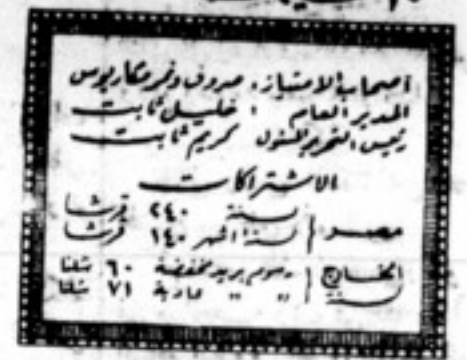 أصحاب الامتياز : صروف ونمر ومكاريوس
المدير العام : خليل ثابت
رئيس التحرير المسئول كريم ثابت
الاشتراكات
مصر سنة ٢٤٠ قرشا
لستة أشهر ١٤٠ قرشا
الخارج رسوم بريد مخفضة ٦٠ شلنا
لسنة " " عادية ٧١ شلنا